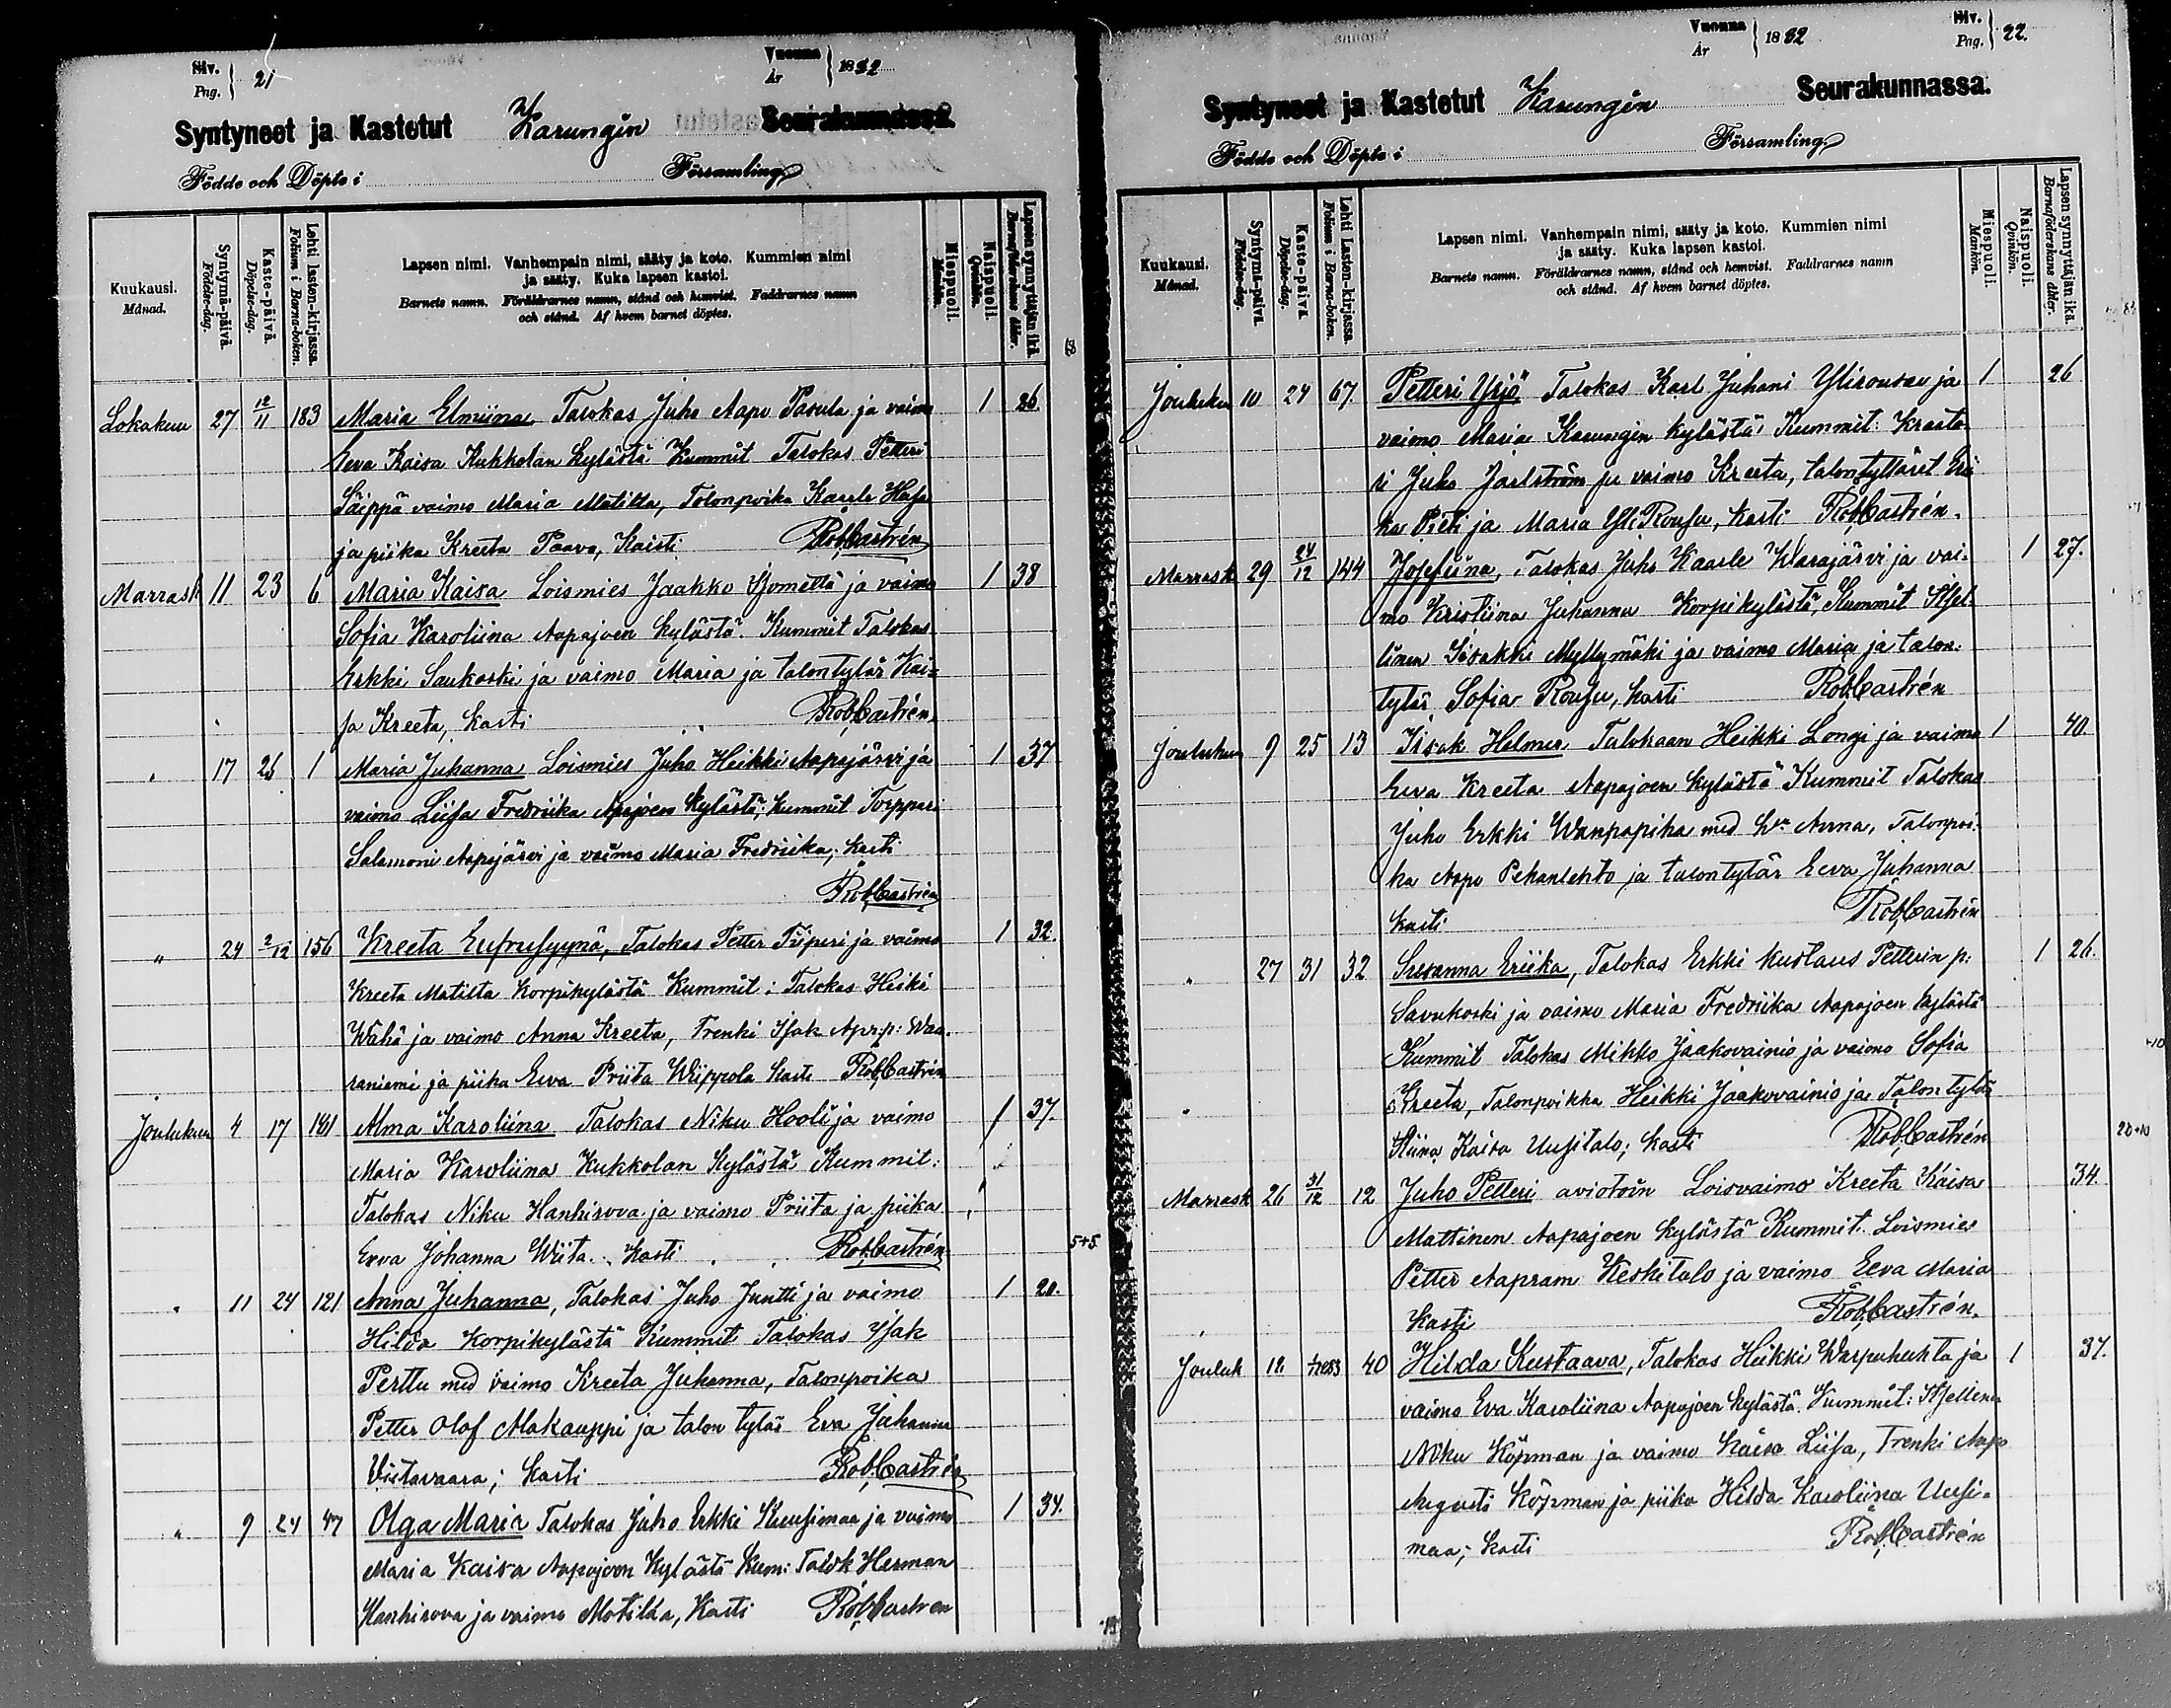 Siv. Pag. 21
Vuonna År 1882
Syntyneet ja Kastetut Karungin Seurakunnassa.
Födde och Döpte i Församling
Kuukausi. Månad.
Syntymä-päivä. Födelse-dag.
Kaste-päivä. Döpelse-dag.
Lehti lasten-kirjassa. Folium i Barna-boken.
Lapsen nimi. Vanhempain nimi, sääty ja koto. Kummien nimi
ja sääty. Kuka lapsen kastoi.
Barnets namn. Föräldrarnes namn, stånd och hemvist. Faddrarnes namn
och stånd. Af hvem barnet döptes.
Miespuoli. Mankön.
Naispuoli. Qvinkön.
Lapsen synnyttäjän ikä. Barnaföderskans ålder.
Lokakuu 27 12/11 183 Maria Elmiina Talokas Juho Aapo Pasula ja vaimo 1 26.
Eeva Kaisa Kukkolan kylästä. Kummit Talokas Petteri
Säippä vaimo Maria Matilda, Talonpoika Kaarle
ja piika Kreeta Paavo, Kasti Rob. Castrén
Marrask 11 23 6 Maria Kaisa Loismies Jaakko ja vaimo 1 38
Sofia Karoliina Aapajoen kylästä. Kummit Talokas
Erkki Saukoski ja vaimo Maria ja talontytär Kai-
sa Kreeta, kasti Rob. Castrén
" 17 26 1 Maria Juhanna Loismies Juho Heikki Aapajärvi ja 1 37
vaimo Liisa Fredriika Apajoen kylästä; Kummit Torppari
Salamoni Aapajärvi ja vaimo Maria Fredriika; kasti
Rob. Castrén
" 24 2/12 156 Kreeta Eufrusyynä, Talokas Petter ja vaimo 1 32.
Kreeta Matilta Korpikylästä Kummit: Talokas Heiki
Wähä ja vaimo Anna Kreeta, Trenki Isak Apr.p: Waa-
raniemi ja piika Eeva Priita Wiippola kasti Rob. Castrén
Joulukuu 4 17 181 Alma Karoliina Talokas Niku Hooli ja vaimo 1 37.
Maria Karoliina Kukkolan kylästä Kummit:
Talokas Niku Hanhirova ja vaimo Priita ja piika
Eeva Johanna Wiita. Kasti Rob. Castrén
5+5
" 11 24 121 Anna Juhanna, Talokas Juho Juntti ja vaimo 1 20.
Hilda Korpikylästä Kummit Talokas Isak
Perttu med vaimo Kreeta Juhanna, Talonpoika
Petter Olof Alakauppi ja talon tytär Eva Juhanna
Viitavaara; kasti Rob. Castrén
" 9 24 47 Olga Maria Talokas Juho Erkki Kuusimaa ja vaimo 1 34.
Maria Kaisa Aapajoen kylästä Kum: Talok Herman
Hanhirova ja vaimo Matilda, Kasti Rob. Castren
Vuonna År 1882
Siv. Pag. 22.
Syntyneet ja Kastetut Karungin Seurakunnassa.
Födde och Döpte i Församling
Kuukausi. Månad.
Syntymä-päivä. Födelse-dag.
Kaste-päivä. Döpelse-dag.
Lehti lasten-kirjassa. Folium i Barna-boken.
Lapsen nimi. Vanhempain nimi, sääty ja koto. Kummien nimi
ja sääty. Kuka lapsen kastoi.
Barnets namn. Föräldrarnes namn, stånd och hemvist. Faddrarnes namn
och stånd. Af hvem barnet döptes.
Miespuoli. Mankön.
Naispuoli. Qvinkön.
Lapsen synnyttäjän ikä. Barnaföderskans ålder.
Joulukuu 10 24 67 Petteri Yrjö Talokas Karl Juhani Ylirousu ja 1 26
vaimo Maria Karungin kylästä Kummit:
Juho Jarlström ja vaimo Kreeta, talontyttäret Erii
ka Pieti ja Maria Yli Rousu, kasti Rob. Castrén.
Marrask 29 24/12 144 Josefiina, Talokas Juho Kaarle Karajärvi ja vai- 1 27.
mo Kristiina Juhanna Korpikylästä, Kummit Itsel-
linen Iisakki Myllymäki ja vaimo Maria ja talon-
tytär Sofia Rousu, kasti Rob. Castrén
Joulukuu 9 25 13 Iisak Helmer Talokaan Heikki Longi ja vaimo 1 40.
Eeva Kreeta Aapajoen kylästä Kummit Talokas
Juho Erkki Wanpapiha med h:u Anna, Talonpoi-
ka Aapo Pekanlehto ja talontytär Eeva Juhanna
kasti Rob. Castrén
" 27 31 32 Susanna Eriika, Talokas Erkki Kustaus Petterin p: 1 26.
Savukoski ja vaimo Maria Fredriika Aapajoen kylästä
Kummit Talokas Mikko Jaakovainio ja vaimo Sofia
Kreeta, Talonpoikka Heikki Jaakovainio ja Talontytär
Stiina Kaisa Uusitalo; kasti Rob. Castrén
20+10
Marrask 26 31/12 12 Juho Petteri aviotoin Loisvaimo Kreeta Kaisa 34.
Mattinen Aapajoen kylästä Kummit. Loismies
Petter Aapram Keskitalo ja vaimo Eeva Maria
kasti Rob. Castrén.
Jouluk 12. 40 Hilda Kustaava, Talokas Heikki Warpuhuhta ja 1 37.
vaimo Eva Karoliina Aapajoen kylästä. Kummit: Itsellinen
Niku Köpman ja vaimo Kaisa Liisa, Trenki Aapo
Augusti Köpman ja piika Hilda Karoliina Uusi-
maa; kasti Rob. Castrén